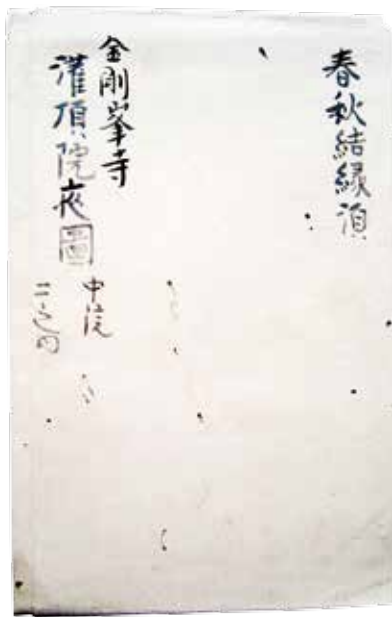 春秋結縁頂
金剛峯寺
灌頂院夜圖
中院